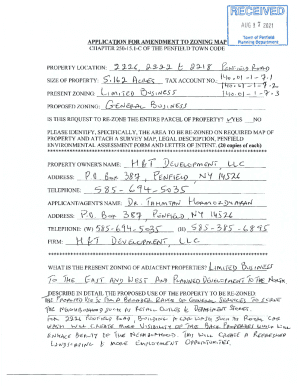 RECEIVED
AUG 2021
Town of Penfield
Planning Department
APPLICATION FOR AMENDMENT TO ZONING MAP
CHAPTER 250-15.1-C OF THE PENFIELD TOWN CODE
PROPERTY LOCATION: 2226, 2222 & 2218 PENFIELD ROAD
SIZE OF PROPERTY: 5.162 ACRES TAX ACCOUNT NO.: 140.01-1-7.1
140.01-1-7.2
PRESENT ZONING: LIMITED BUSINESS 140.01-1-7.3
PROPOSED ZONING: GENERAL BUSINESS
IS THIS REQUEST TO RE-ZONE THE ENTIRE PARCEL OF PROPERTY? YES NO
PLEASE IDENTIFY, SPECIFICALLY, THE AREA TO BE RE-ZONED ON REQUIRED MAP OF
PROPERTY AND ATTACH A SURVEY MAP, LEGAL DESCRIPTION, PENFIELD
ENVIRONMENTAL ASSESSMENT FORM AND LETTER OF INTENT. (20 copies of each)
PROPERTY OWNER'S NAME: H&T DEVELOPMENT, LLC
ADDRESS: P.O. BOX 387, PENFIELD, NY 14526
TELEPHONE: 585-694-5035
APPLICANT/AGENT'S NAME: DR.
ADDRESS: P.O. BOX 387, PENFIELD, NY 14526
TELEPHONE: (W) 585-694-5035 (H) 585-385-6895
FIRM: H&T DEVELOPMENT, LLC
WHAT IS THE PRESENT ZONING OF ADJACENT PROPERTIES? LIMITED BUSINESS
TO THE EAST AND WEST AND PLANNED DEVELOPMENT TO THE NORTH
DESCRIBE IN DETAIL THE PROPOSED USE OF THE PROPERTY TO BE RE-ZONED.
THE PROPOSED USE IS FOR A BROADER RANGE OF GENERAL SERVICES TO SERVE
THE NEIGHBORHOOD SUCH AS RETAIL
FOR 2222 PENFIELD ROAD, BUILDING A CAR WASH SUCH AS ROYAL CAR
WASH WILL CREATE MORE VISIBILITY OF THE BACK PROPERTIES WHICH WILL
ENHANCE BEAUTY OF THE NEIGHBORHOOD. THIS WILL CREATE A REFRESHED
LANDSCAPING & MORE EMPLOYMENT OPPORTUNITIES.